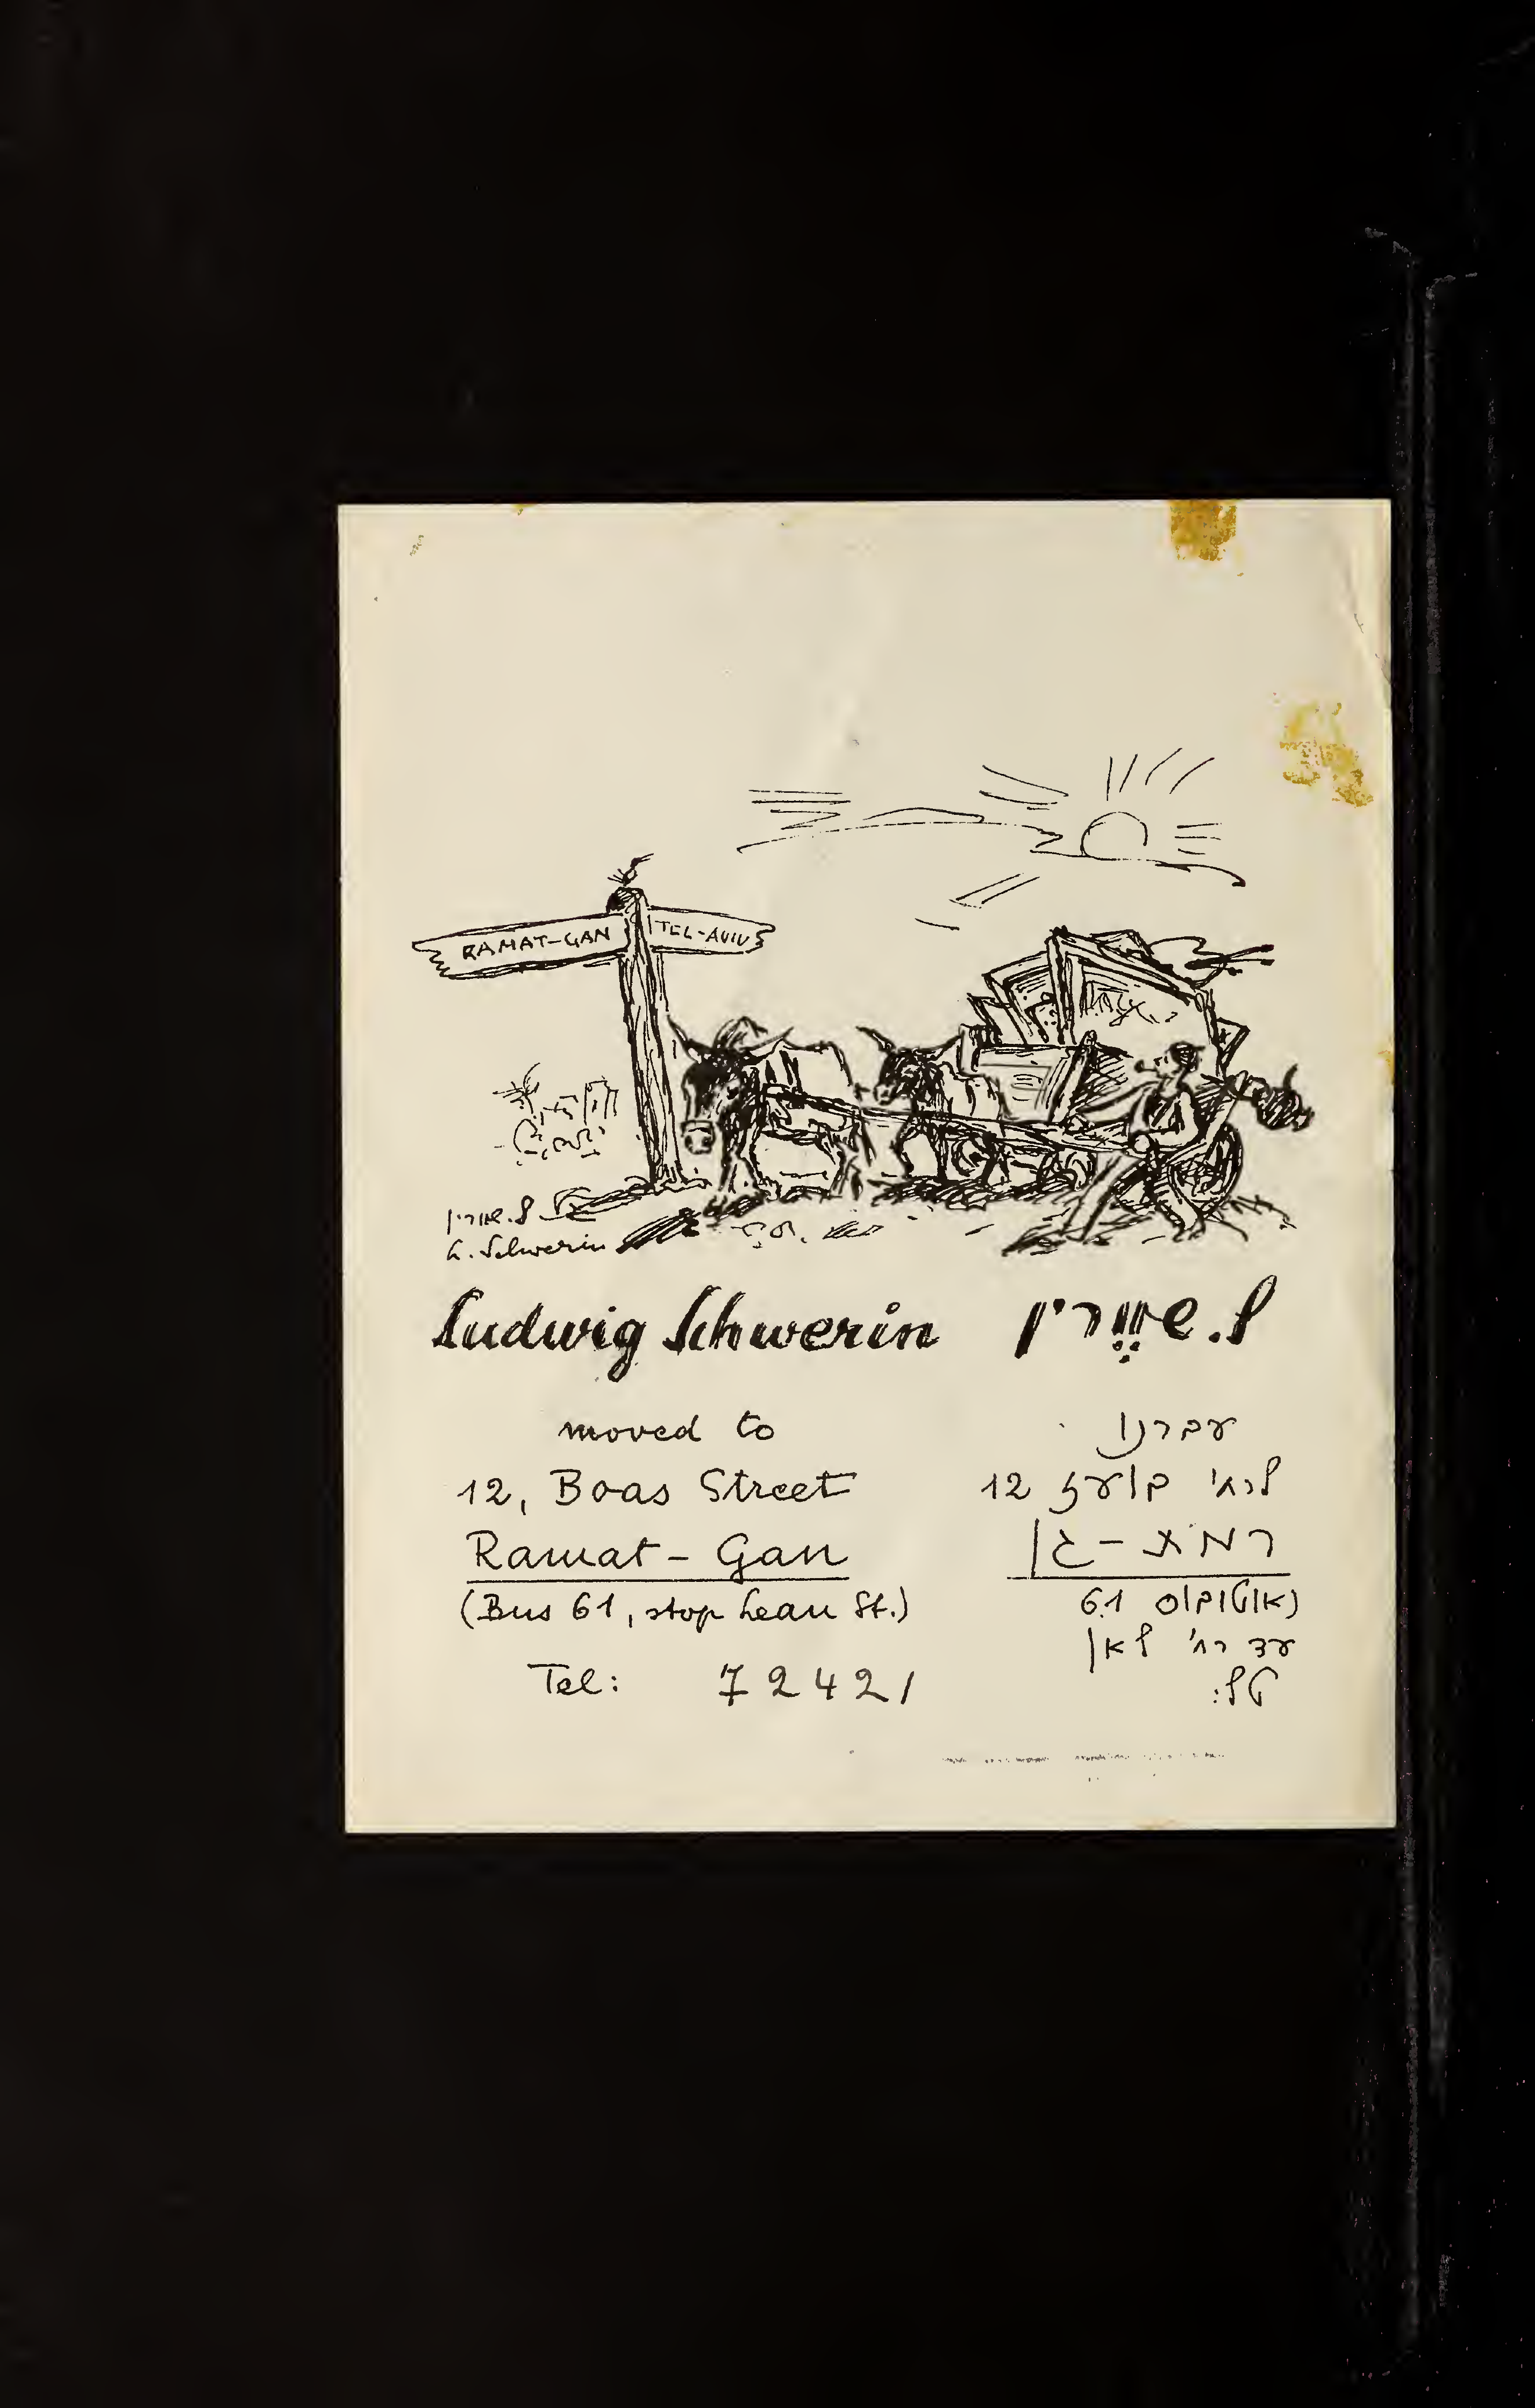 RAMAT-GAN
TEL-AVIV
ל. שוורין
L. Schwerin
Ludwig Schwerin
ל. שוורין
moved to
12, Boas Street
Ramat-Gan
(Bus 61, stop Lean St.)
Tel: 72421
עברנו
לרח' בועז 12
רמת-גן
(אוטובוס 61
עד רח' לאן
טל: